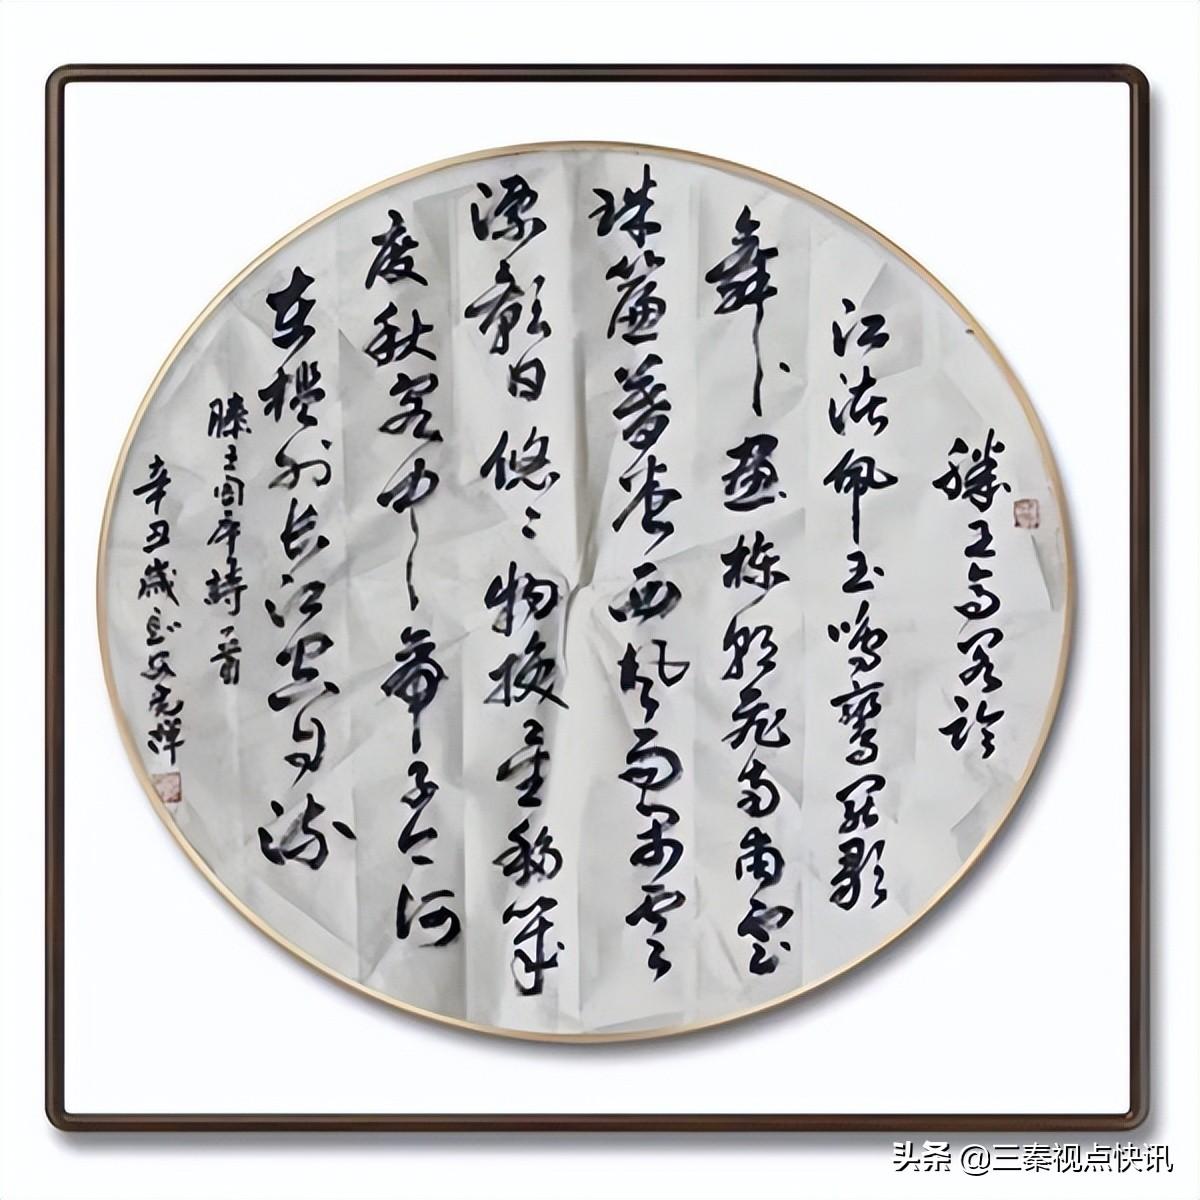 滕王高阁临
江渚佩玉鸣鸾罢歌
舞画栋朝飞南浦云
珠簾暮卷西风雨闲云
潭影日悠々物换星移幾
度秋阁中帝子今何
在槛外长江空自流
滕王阁序诗一首
辛丑岁
头条 @三秦视点快讯